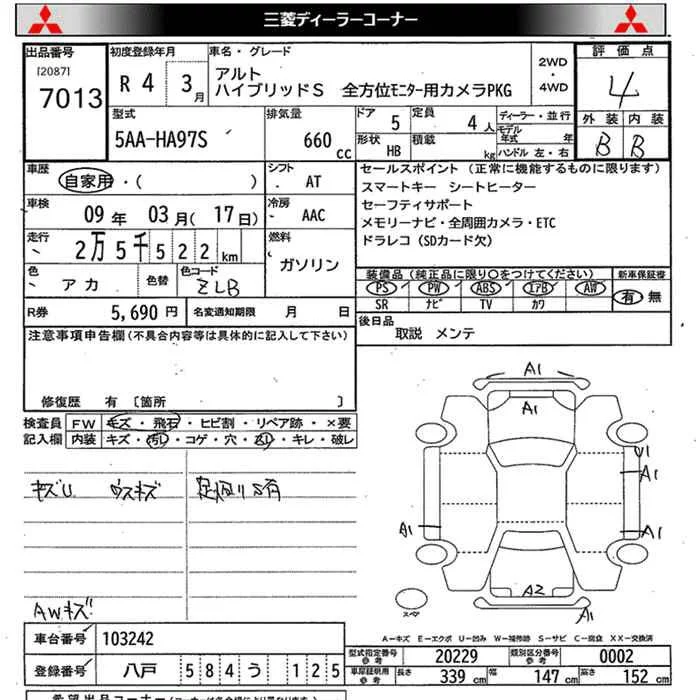 三菱ディーラーコーナー
出品番号
[2087]
7013
初度登録年月
R 4 3月
車名・グレード
アルト
ハイブリッドS 全方位モニター用カメラPKG
2WD
・
4WD
評価点
4
外装 内装
B B
型式
5AA-HA97S
排気量
660 cc
ドア 5
定員 4人
形状 HB
積載 kg
ディーラー・並行
モデル年式 年
ハンドル 左・右
車歴
自家用・( )
シフト
AT
車検
09年 03月(17日)
冷房
AAC
走行
2万5千522km
燃料
ガソリン
色
アカ
色替
色コード
ZLB
セールスポイント(正常に機能するものに限ります)
スマートキー シートヒーター
セーフティサポート
メモリーナビ・全周囲カメラ・ETC
ドラレコ(SDカード欠)
装備品(純正品に限り○をつけてください)
PS PW ABS エアB AW
SR ナビ TV カワ
新車保証書
有・無
R券
5,690円
名変通知期限 月 日
後日品
取説 メンテ
注意事項申告欄(不具合内容等は具体的に記入して下さい)
修復歴 有〔箇所 〕
検査員
記入欄
FW キズ・飛石・ヒビ割・リペア跡・×要
内装 キズ・汚レ・コゲ・穴・スレ・キレ・破レ
キズU ウスキズ
AWキズ
A1
A1
U1
A1
A1
A1
A2
A1
スペア
A-キズ E-エクボ U-凹み W-補修跡 S-サビ C-腐食 XX-交換済
車台番号
103242
登録番号
八戸 584 う 125
型式指定番号
参考
20229
類別区分番号
参考
0002
車庫証明用
参考
長さ 339 cm 幅 147 cm 高さ 152 cm
希望出品コーナー